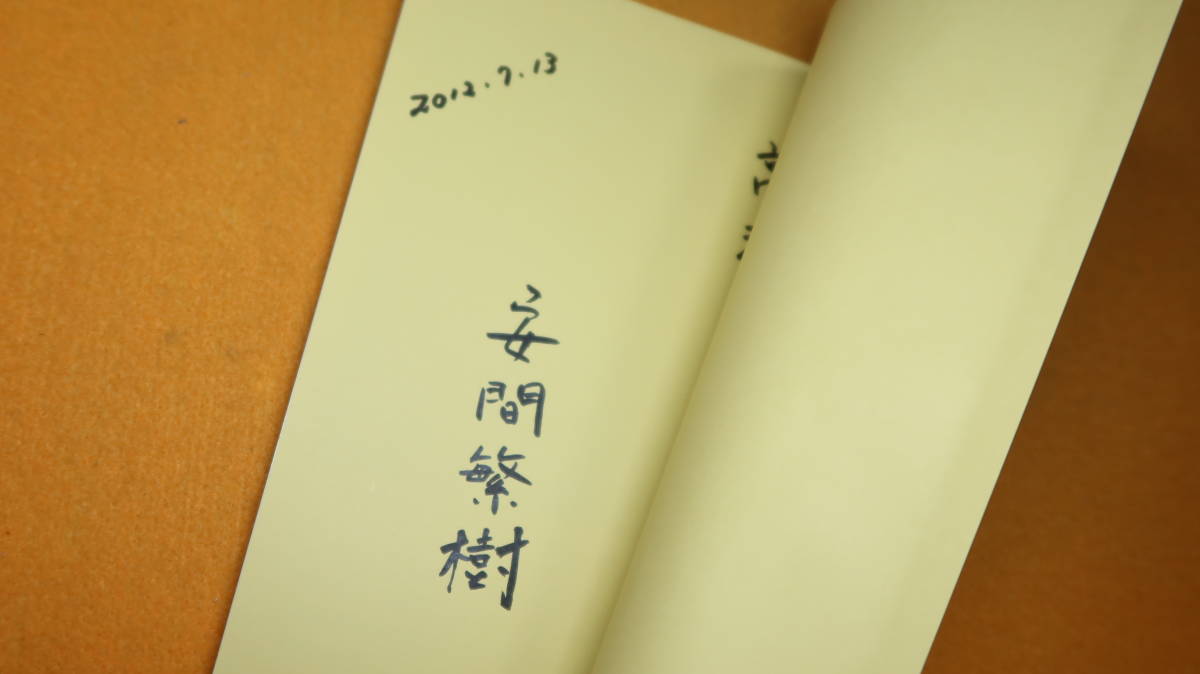 2012.7.13
安間繁樹